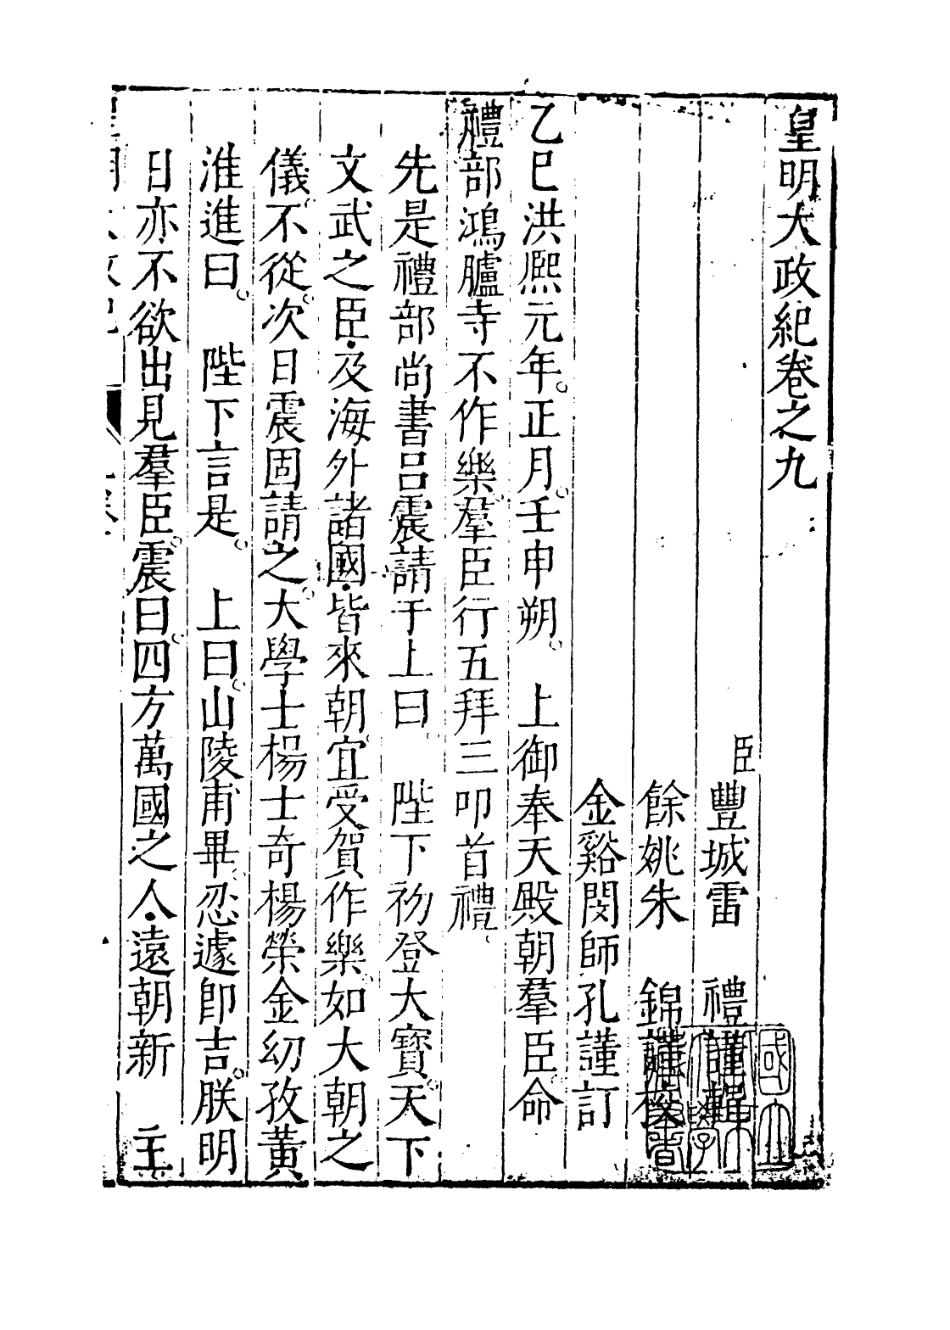 皇明大政紀卷之九
臣豐城雷　禮謹輯
餘姚朱　錦謹校
金谿閔師孔謹訂
乙巳洪熙元年。正月。壬申朔。　上御奉天殿朝羣臣命
禮部鴻臚寺不作樂。羣臣行五拜三叩首禮。
先是禮部尚書呂震請于上曰。　陛下初登大寶。天下
文武之臣。及海外諸國。皆來朝宜受賀作樂。如大朝之
儀。不從。次日震固請之。大學士楊士奇楊榮金幼孜黃
淮進曰。　陛下言是。　上曰。山陵甫畢。忍遽卽吉。朕明
日亦不欲出見羣臣。震曰。四方萬國之人。遠朝新　主